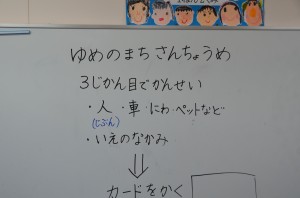 ゆめのまちさんちょうめ
3じかん目でかんせい
・人・車・にわ・ペットなど
(じぶん)
・いえのなかみ
⇓
カードをかく